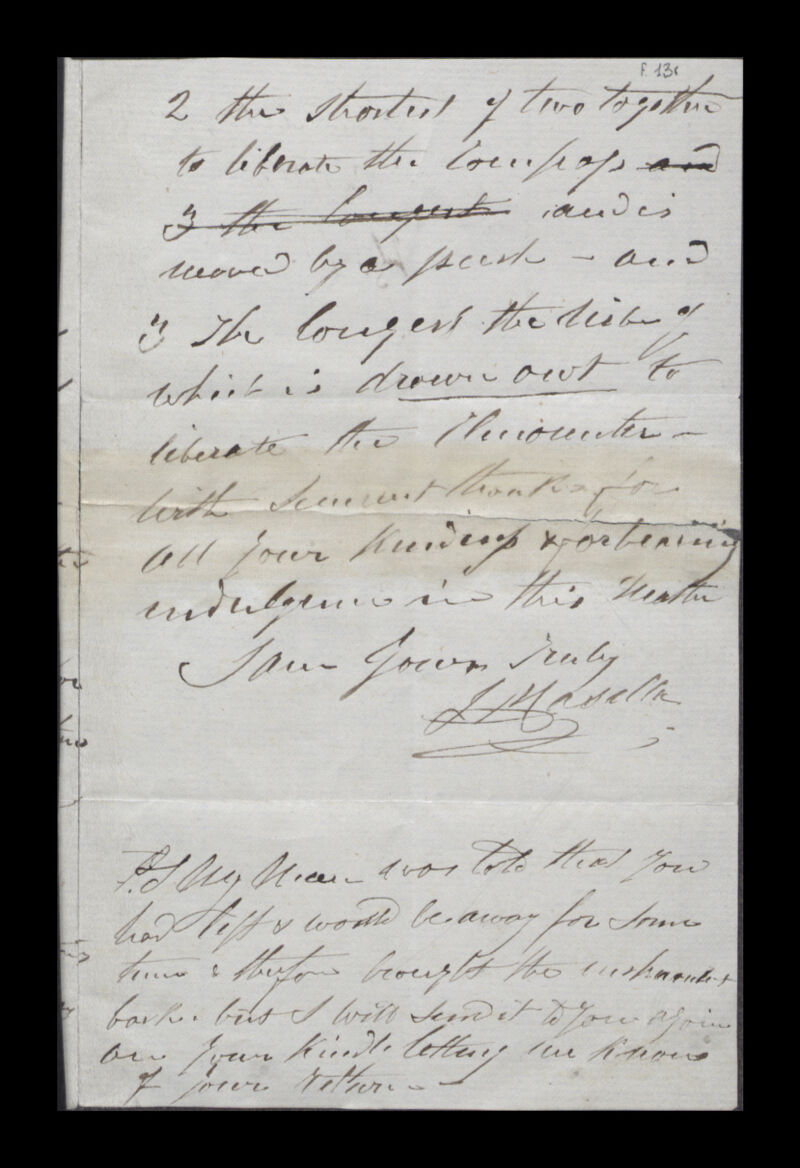 F. 131
2 the shortest of two together
to liberate the Compass and
3 the longest and is
moved by a push - and
3 The longest the
which is drawn out to
liberate the -
with sincerest thanks for
all your kindness & forbearing
indulgence in this Matter
I am Yours truly
P.S My Man was told that you
had left & would be away for some
time & therfore brought the instrument
back. but I will send it to you again
on your kindly letting me know
of your return -